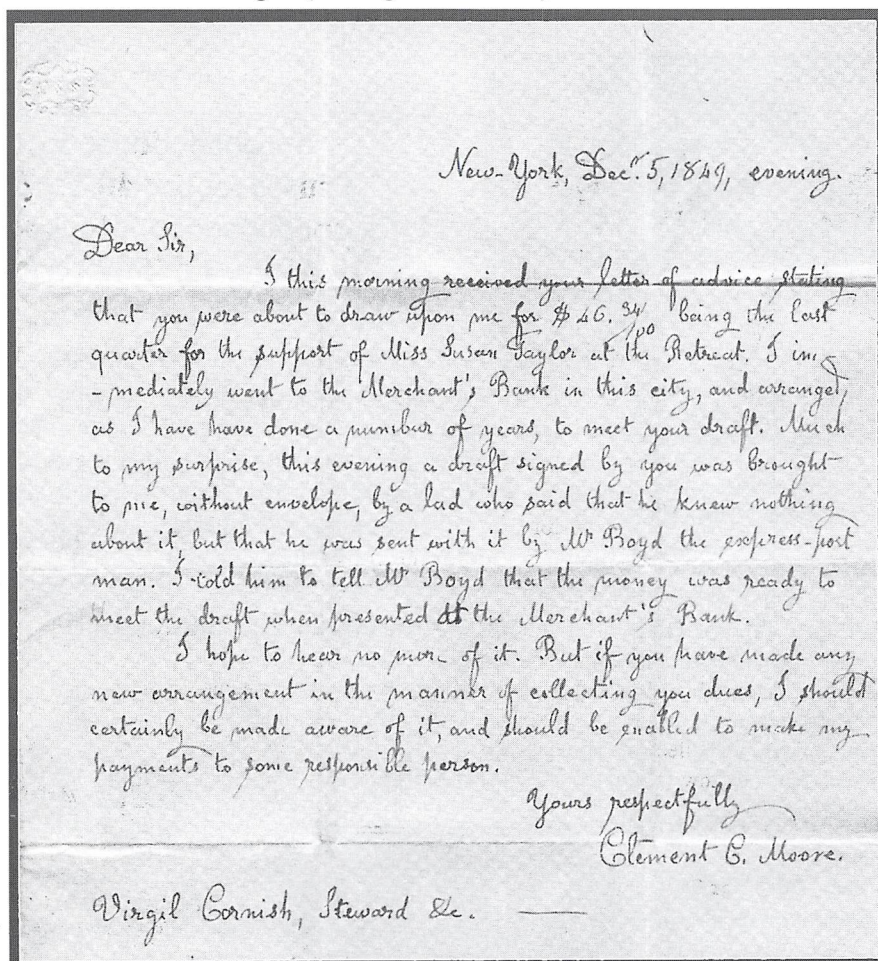 New-York, Decr. 5, 1849, evening.
Dear Sir,
I this morning received your letter of advice stating
that you were about to draw upon me for $46. 34/100 being the last
quarter for the support of Miss Susan Taylor at the Retreat. I im-
-mediately went to the Merchant's Bank in this city, and arranged,
as I have have done a number of years, to meet your draft. Much
to my surprise, this evening a draft signed by you was brought
to me, without envelope, by a lad who said that he knew nothing
about it, but that he was sent with it by Mr Boyd the express-post
man. I told him to tell Mr Boyd that the money was ready to
meet the draft when presented at the Merchant's Bank.
I hope to hear no more of it. But if you have made any
new arrangement in the manner of collecting you dues, I should
certainly be made aware of it, and should be enabled to make my
payments to some responsible person.
Yours respectfully
Clement C. Moore.
Virgil Cornish, Steward &c.